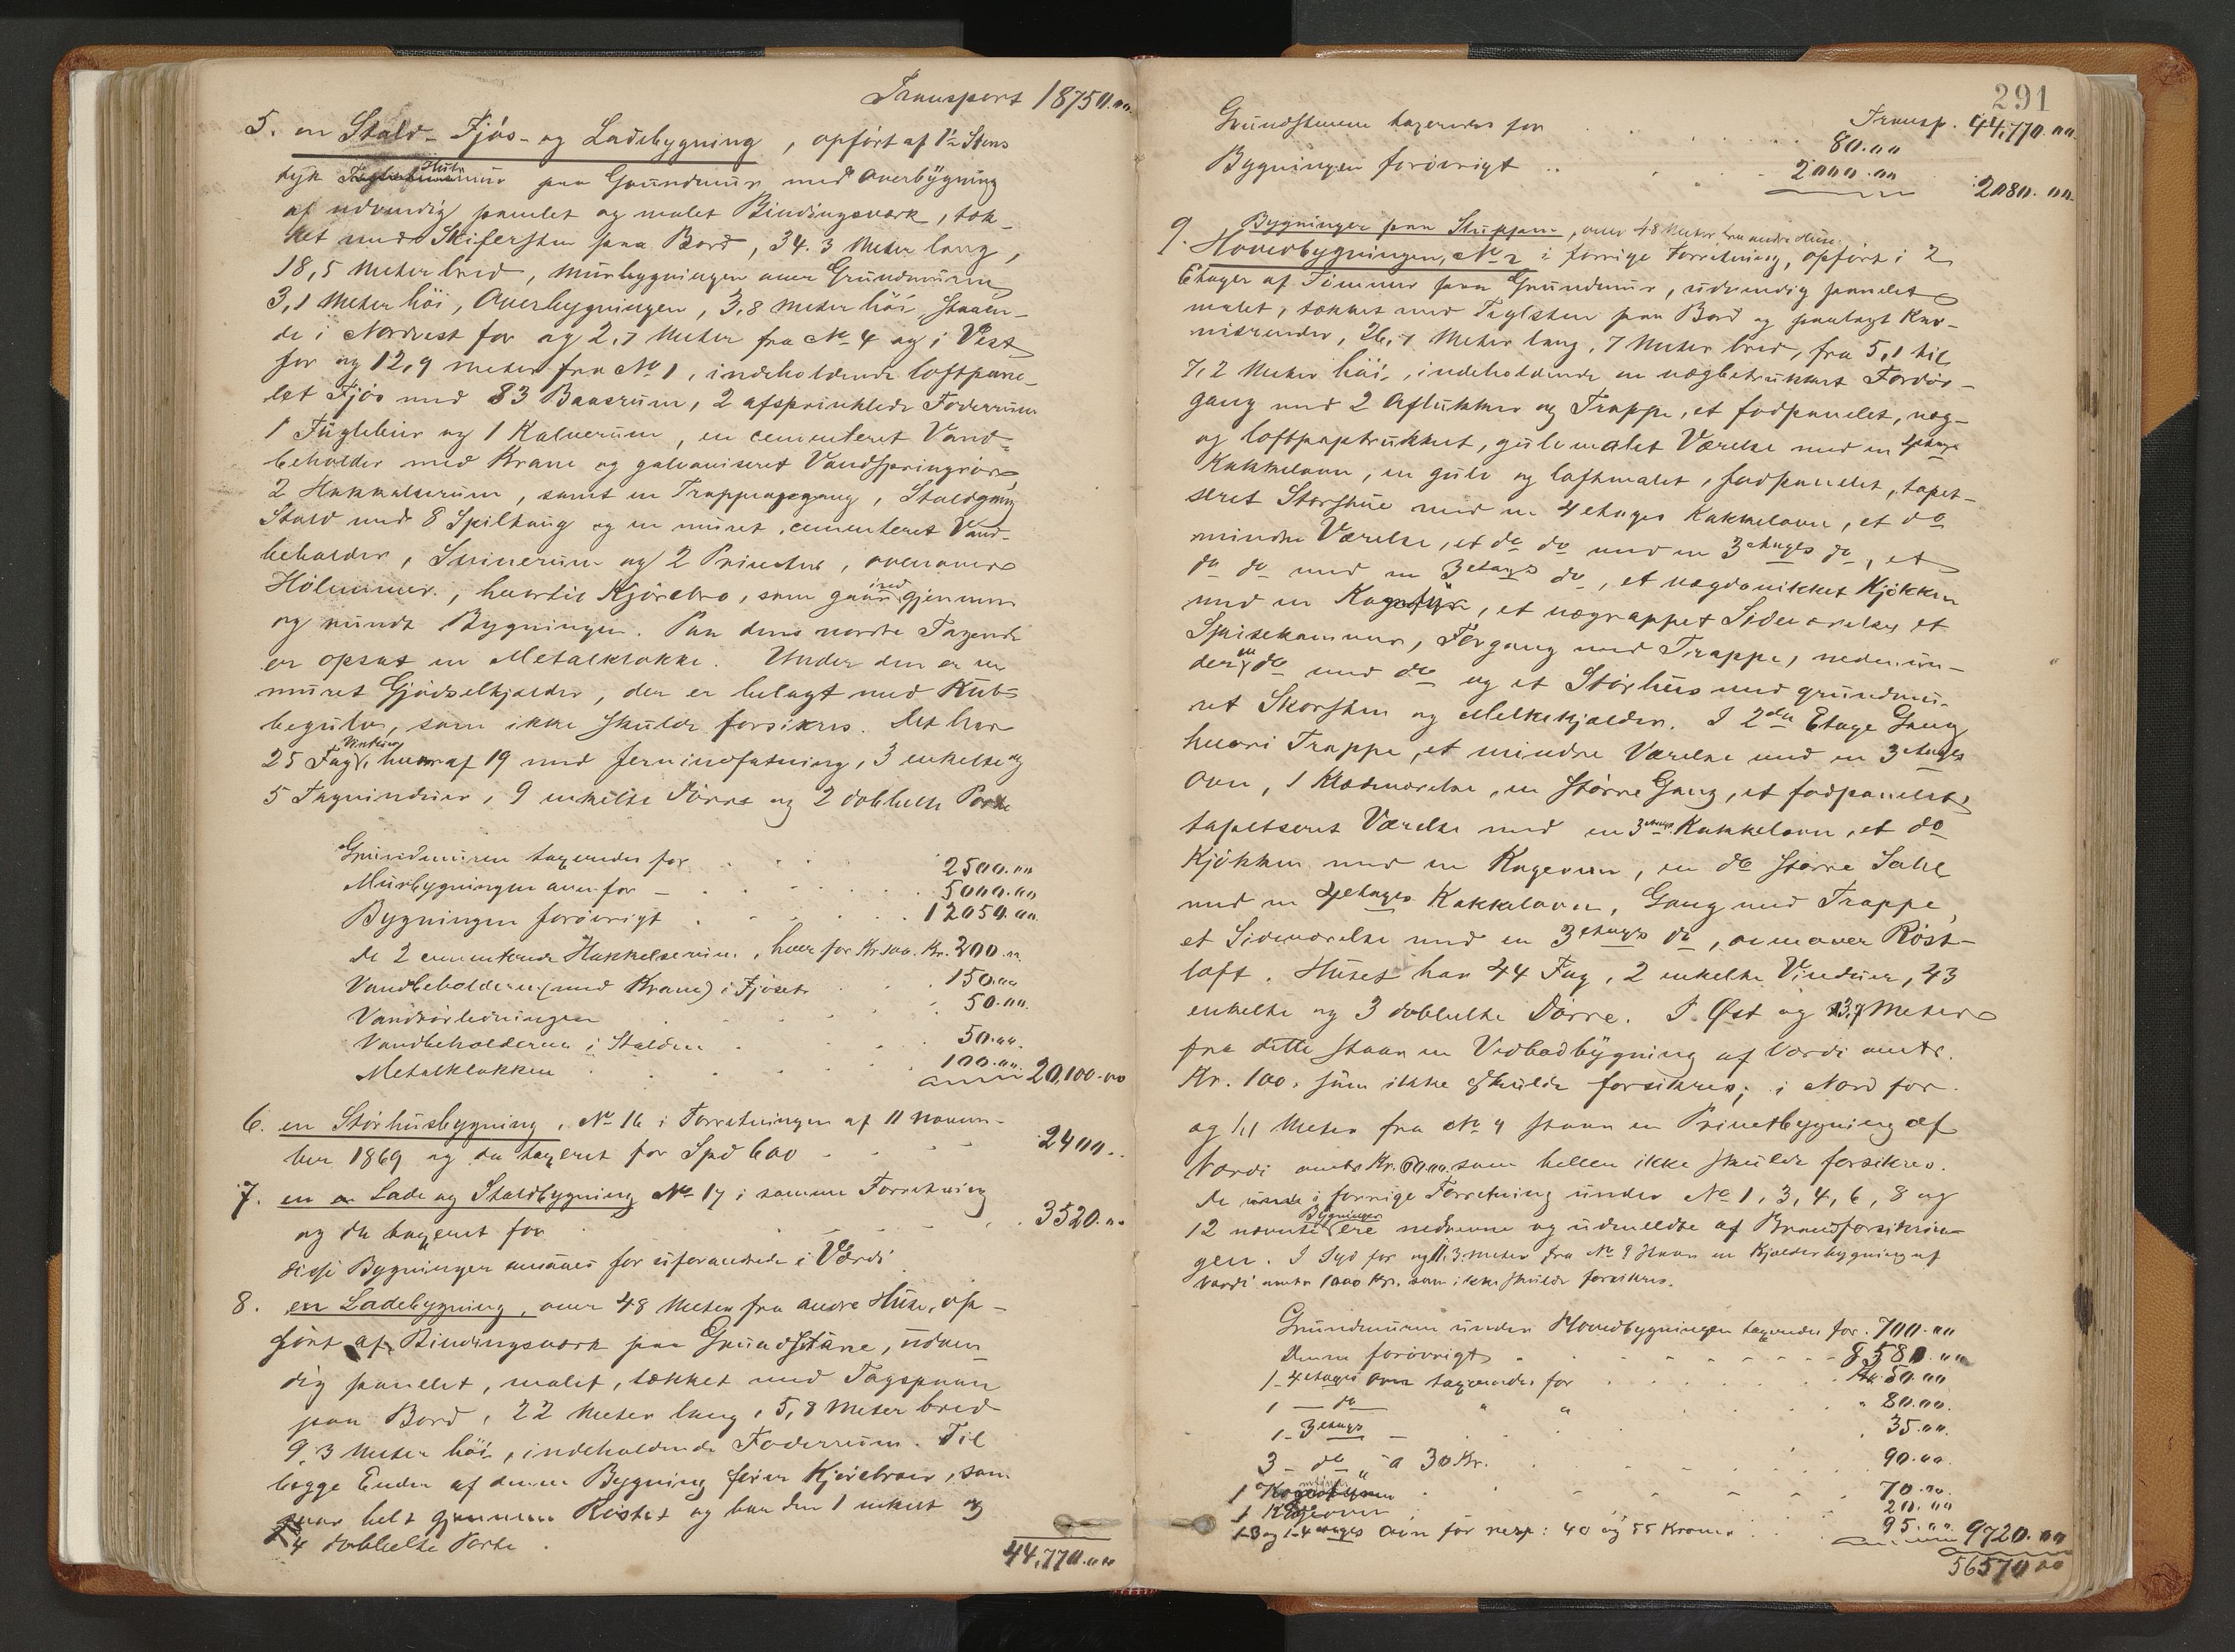 Transport 18750.00
5. en Stald- Fjös- og Ladebygning, opfört af 1½ Stens
tyk Hul mur paa Grundmur med Overbygning
af udvendig panelet og malet Bindingsværk, tæk-
ket med Skifersten paa Bord, 34.3 Meter lang,
18,5 Meter bred, Murbygningen over Grundmuren
3,1 Meter höi, Overbygningen, 3,8 Meter höi, staaen-
de i Nordvest for og 2,7 Meter fra No 4 og i Vest
for og 12,9 Meter fra No 1, indeholdende loftpane-
let Fjös med 83 Baasrum, 2 afsprinklede Foderrum
1 Fuglebur og 1 Kalverum, en cementeret Vand-
beholder med Krane og galvaniseret Vandspringrör,
2 Hakkelserum, samt en Trappeopgang, Staldgang
Stald med 8 Spiltoug og en muret, cementeret Vand-
beholder, Svinerum og 2 Priveter, ovenover
Hölemmer, hvortil Kjörebro, som gaar ind gjennem
og rundt Bygningen. Paa dens nordre Tagende
er opsat en Metalklokke. Under den er en
muret Gjödselkjelder, der er belagt med Kub-
begulv, som ikke skulde forsikres. Det har
25 Fag Vinduer, hvoraf 19 med Jernindfatning, 3 enkelte og
5 Tagvinduer, 9 enkelte Dörre og 2 dobbelte Porte
Grundmuren taxeredes for 2500.00
Murbygningen over for 5000.00
Bygningen forövrigt 12050.00
De 2 cementerede Hakkelserum, hver for Kr. 100. Kr. 200.00
Vandbeholderen (med Krane) i Fjöset 150.00
Vandrörledningen 50.00
Vandbeholderen i Stalden 50.00
Metalklokken 100.00 20,100.00
6. en Störhusbygning, No 16 i Forretningen af 11 Novem-
ber 1869 og da taxeret for Spd 600 2400..
7. en Lade og Staldbygning No 17 i samme Forretning
og da taxeret for 3520.00
disse Bygninger ansaaes for uforandrede i Værdi
8. en Ladebygning, over 48 Meter fra andre Huse, op-
fört af Bindingsværk paa Grundstene, udven-
dig panelet, malet, tækket med Tagspaan
paa Bord, 22 Meter lang, 5,8 Meter bred
9.3 Meter höi, indeholdende Foderrum. Til
begge Ender af denne Bygning förer Kjörebroer, som
gaar helt gjennem Röstet og har den 1 enkelt og
4 dobbelte Porte.
44,770.00
291
Transp. 44,770.00
Grundstenene taxeredes for 80.00
Bygningen forövrigt 2000.00 2080.00
Bygninger paa Stuppen, over 48 Meter fra andre Huse
9. Hovedbygningen, No 2 i forrige Forretning, opfört i 2
Etager af Tömmer paa Grundmur, udvendig panelet
malet, tækket med Taglsten paa Bord og paalagt Kar-
nisrender, 26,7 Meter lang, 7 Meter bred, fra 5,1 til
7,2 Meter höi, indeholdende en vægbetrukket Fordör-
gang med 2 Aflukker og Trappe, et fodpanelet, væg-
og loftpaptrukket, gulvmalet Værelse med en 4 etages
Kakkelovn, en gulv og loftmalet, fodpanelet, tapet-
seret Storstue med en 4 etages Kakkelovn, et do
mindre Værelse, et do do med en 3 etages do, et
do do med en 3 etages do, et vægpanikket Kjökken
med en Kogeovn, et vægrappet Sideværelse, et
Spisekammer, Forgang med Trappe, nedenun-
der en do med do og et Störhus med grundmu-
ret Skorsten og Melkekjælder. I 2den Etage Gang
hvori Trappe, et mindre Værelse med en 3 etages
Ovn, 1 Klædeværelse, en större Gang, et fodpanelet,
tapetseret Værelse med en 3 etages Kakkelovn, et do
Kjökken med en Kogeovn, en do större Sahl
med en 4 etages Kakkelovn, Gang med Trappe,
et Sideværelse med en 3 etages do, ovenover Röst-
loft. Huset har 44 Fag, 2 enkelte Vinduer, 43
enkelte og 3 dobbelte Dörre. I Øst og 13,7 Meter
fra dette staar en Vedbodbygning af Værdi omtr.
Kr. 100, som ikke skulde forsikres; i Nord for
og 1,1 Meter fra No 9 staar en Privetbygning af
Værdi omtr. Kr. 60.00 som heller ikke skulde forsikres.
De i forrige Forretning under No 1, 3, 4, 6, 8 og
12 nævnte Bygninger ere nedrevne og udmeldte af Brandforsikrin-
gen. I Syd for og 11.3 Meter fra No 9 staar en Kjælderbygning af
Værdi omtr 1000 Kr. som ikke skulde forsikres.
Grundmuren under Hovedbygningen taxeredes for 700.00
Denne forövrigt 8580.00
1 4 etages Ovn taxeredes for Kr. 50.00
1 — do " " 80.00
1 3 etages — 35.00
3 — do " a 30 Kr. 90.00
1 70.00
1 Kogeovn 20.00
1-3 og 1-4 etages Ovn for resp: 40 og 55 Kroner 95.00 9720.00
56570.00